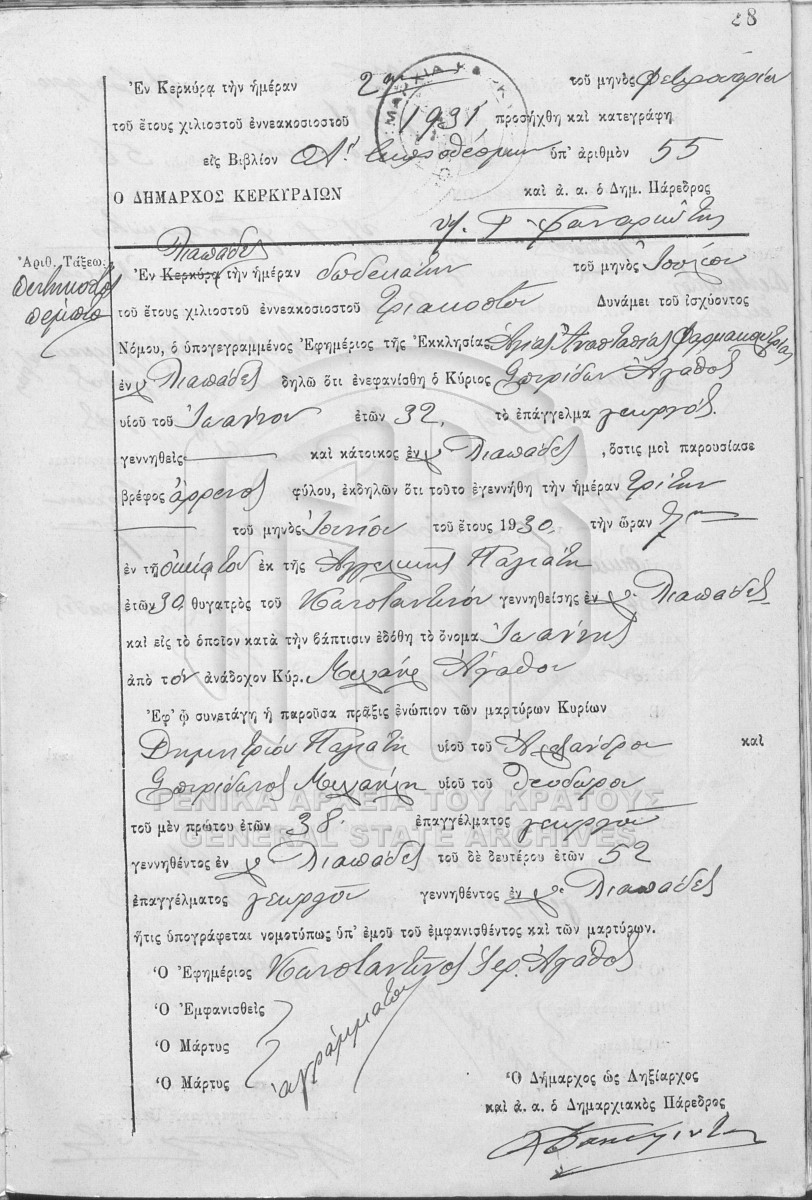 28
Ἐν Κερκύρᾳ τὴν ἡμέραν 2αν τοῦ μηνὸς Φεβρουαρίου
τοῦ ἔτους χιλιοστοῦ ἐννεακοσιοστοῦ 1931 προσήχθη καὶ κατεγράφη
εἰς Βιβλίον ὑπ' ἀριθμὸν 55
Ο ΔΗΜΑΡΧΟΣ ΚΕΡΚΥΡΑΙΩΝ καὶ ἀ. α. ὁ Δημ. Πάρεδρος
Ἀριθ. Τάξεω:
πεντηκοστὸν
πέμπτο
Λιαπάδες
Ἐν Κερκύρᾳ τὴν ἡμέραν δωδεκάτην τοῦ μηνὸς Ἰουλίου
τοῦ ἔτους χιλιοστοῦ ἐννεακοσιοστοῦ τριακοστοῦ Δυνάμει τοῦ ἰσχύοντος
Νόμου, ὁ ὑπογεγραμμένος Ἐφημέριος τῆς Ἐκκλησίας Ἁγίας Ἀναστασίας Φαρμακολυτρίας
ἐν Λιαπάδες δηλῶ ὅτι ἐνεφανίσθη ὁ Κύριος Σπυρίδων Ἀγάθος
υἱοῦ τοῦ Ἰωάννου ἐτῶν 32, τὸ ἐπάγγελμα γεωργός.
γεννηθεὶς καὶ κάτοικος ἐν Λιαπάδες, ὅστις μοὶ παρουσίασε
βρέφος ἄρρενος φύλου, ἐκδηλῶν ὅτι τοῦτο ἐγεννήθη τὴν ἡμέραν τρίτην
τοῦ μηνὸς Ἰουνίου τοῦ ἔτους 1930. τὴν ὥραν 7ην
ἐν τῇ οἰκίᾳ του ἐκ τῆς Ἀγγελικῆς Παγιάτη
ἐτῶν 30 θυγατρὸς τοῦ Κωνσταντίνου γεννηθείσης ἐν Λιαπάδες
καὶ εἰς τὸ ὁποῖον κατὰ τὴν βάπτισιν ἐδόθη τὸ ὄνομα Ἰωάννης
ἀπὸ τὸν ἀνάδοχον Κύρ. Μιχαήλ Ἀγάθου
Ἐφ' ᾧ συνετάγη ἡ παροῦσα πρᾶξις ἐνώπιον τῶν μαρτύρων Κυρίων
Δημητρίου Παγιάτη υἱοῦ τοῦ Ἀλεξάνδρου καὶ
Σπυρίδωνος Μιχαήλη υἱοῦ τοῦ Θεοδώρου
ΓΕΝΙΚΑ ΑΡΧΕΙΑ ΤΟΥ ΚΡΑΤΟΥΣ
τοῦ μὲν πρώτου ἐτῶν 38. ἐπαγγέλματος γεωργοῦ
GENERAL STATE ARCHIVES
γεννηθέντος ἐν Λιαπάδες τοῦ δὲ δευτέρου ἐτῶν 52
ἐπαγγέλματος γεωργοῦ γεννηθέντος ἐν Λιαπάδες
ἥτις ὑπογράφεται νομοτύπως ὑπ' ἐμοῦ τοῦ ἐμφανισθέντος καὶ τῶν μαρτύρων.
Ὁ Ἐφημέριος Κωνσταντῖνος Ἱερ. Ἀγάθος
Ὁ Ἐμφανισθεὶς
Ὁ Μάρτυς
ἀγράμματοι
Ὁ Μάρτυς
Ὁ Δήμαρχος ὡς Ληξίαρχος
καὶ ἀ. α. ὁ Δημαρχιακὸς Πάρεδρος